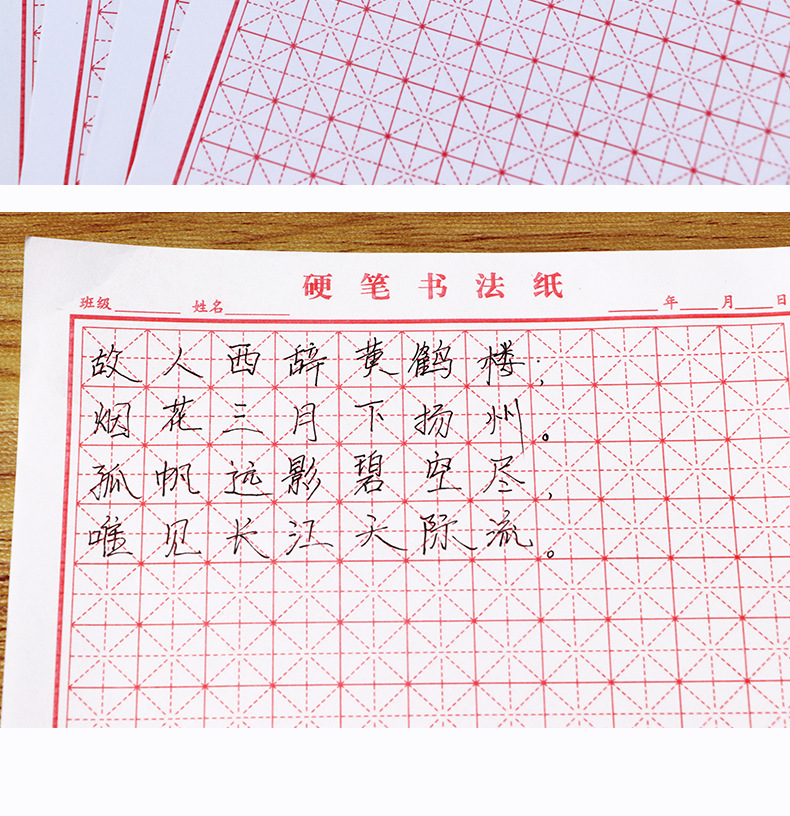 硬笔书法纸
班级 姓名 年 月 日
故人西辞黄鹤楼；
烟花三月下扬州。
孤帆远影碧空尽，
唯见长江天际流。